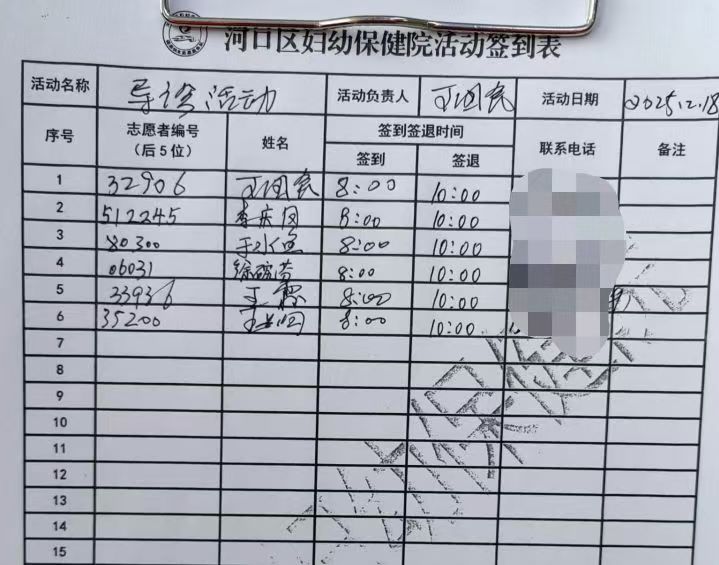 河口区妇幼保健院活动签到表
活动名称 导诊活动 活动负责人 活动日期 2025.12.18
序号 志愿者编号（后5位） 姓名 签到签退时间 联系电话 备注
签到 签退
1 32906 8:00 10:00
2 512245 李庆国 8:00 10:00
3 80300 于水鱼 8:00 10:00
4 06031 8:00 10:00
5 33936 王霞 8:00 10:00
6 35200 8:00 10:00
7
8
9
10
11
12
13
14
15